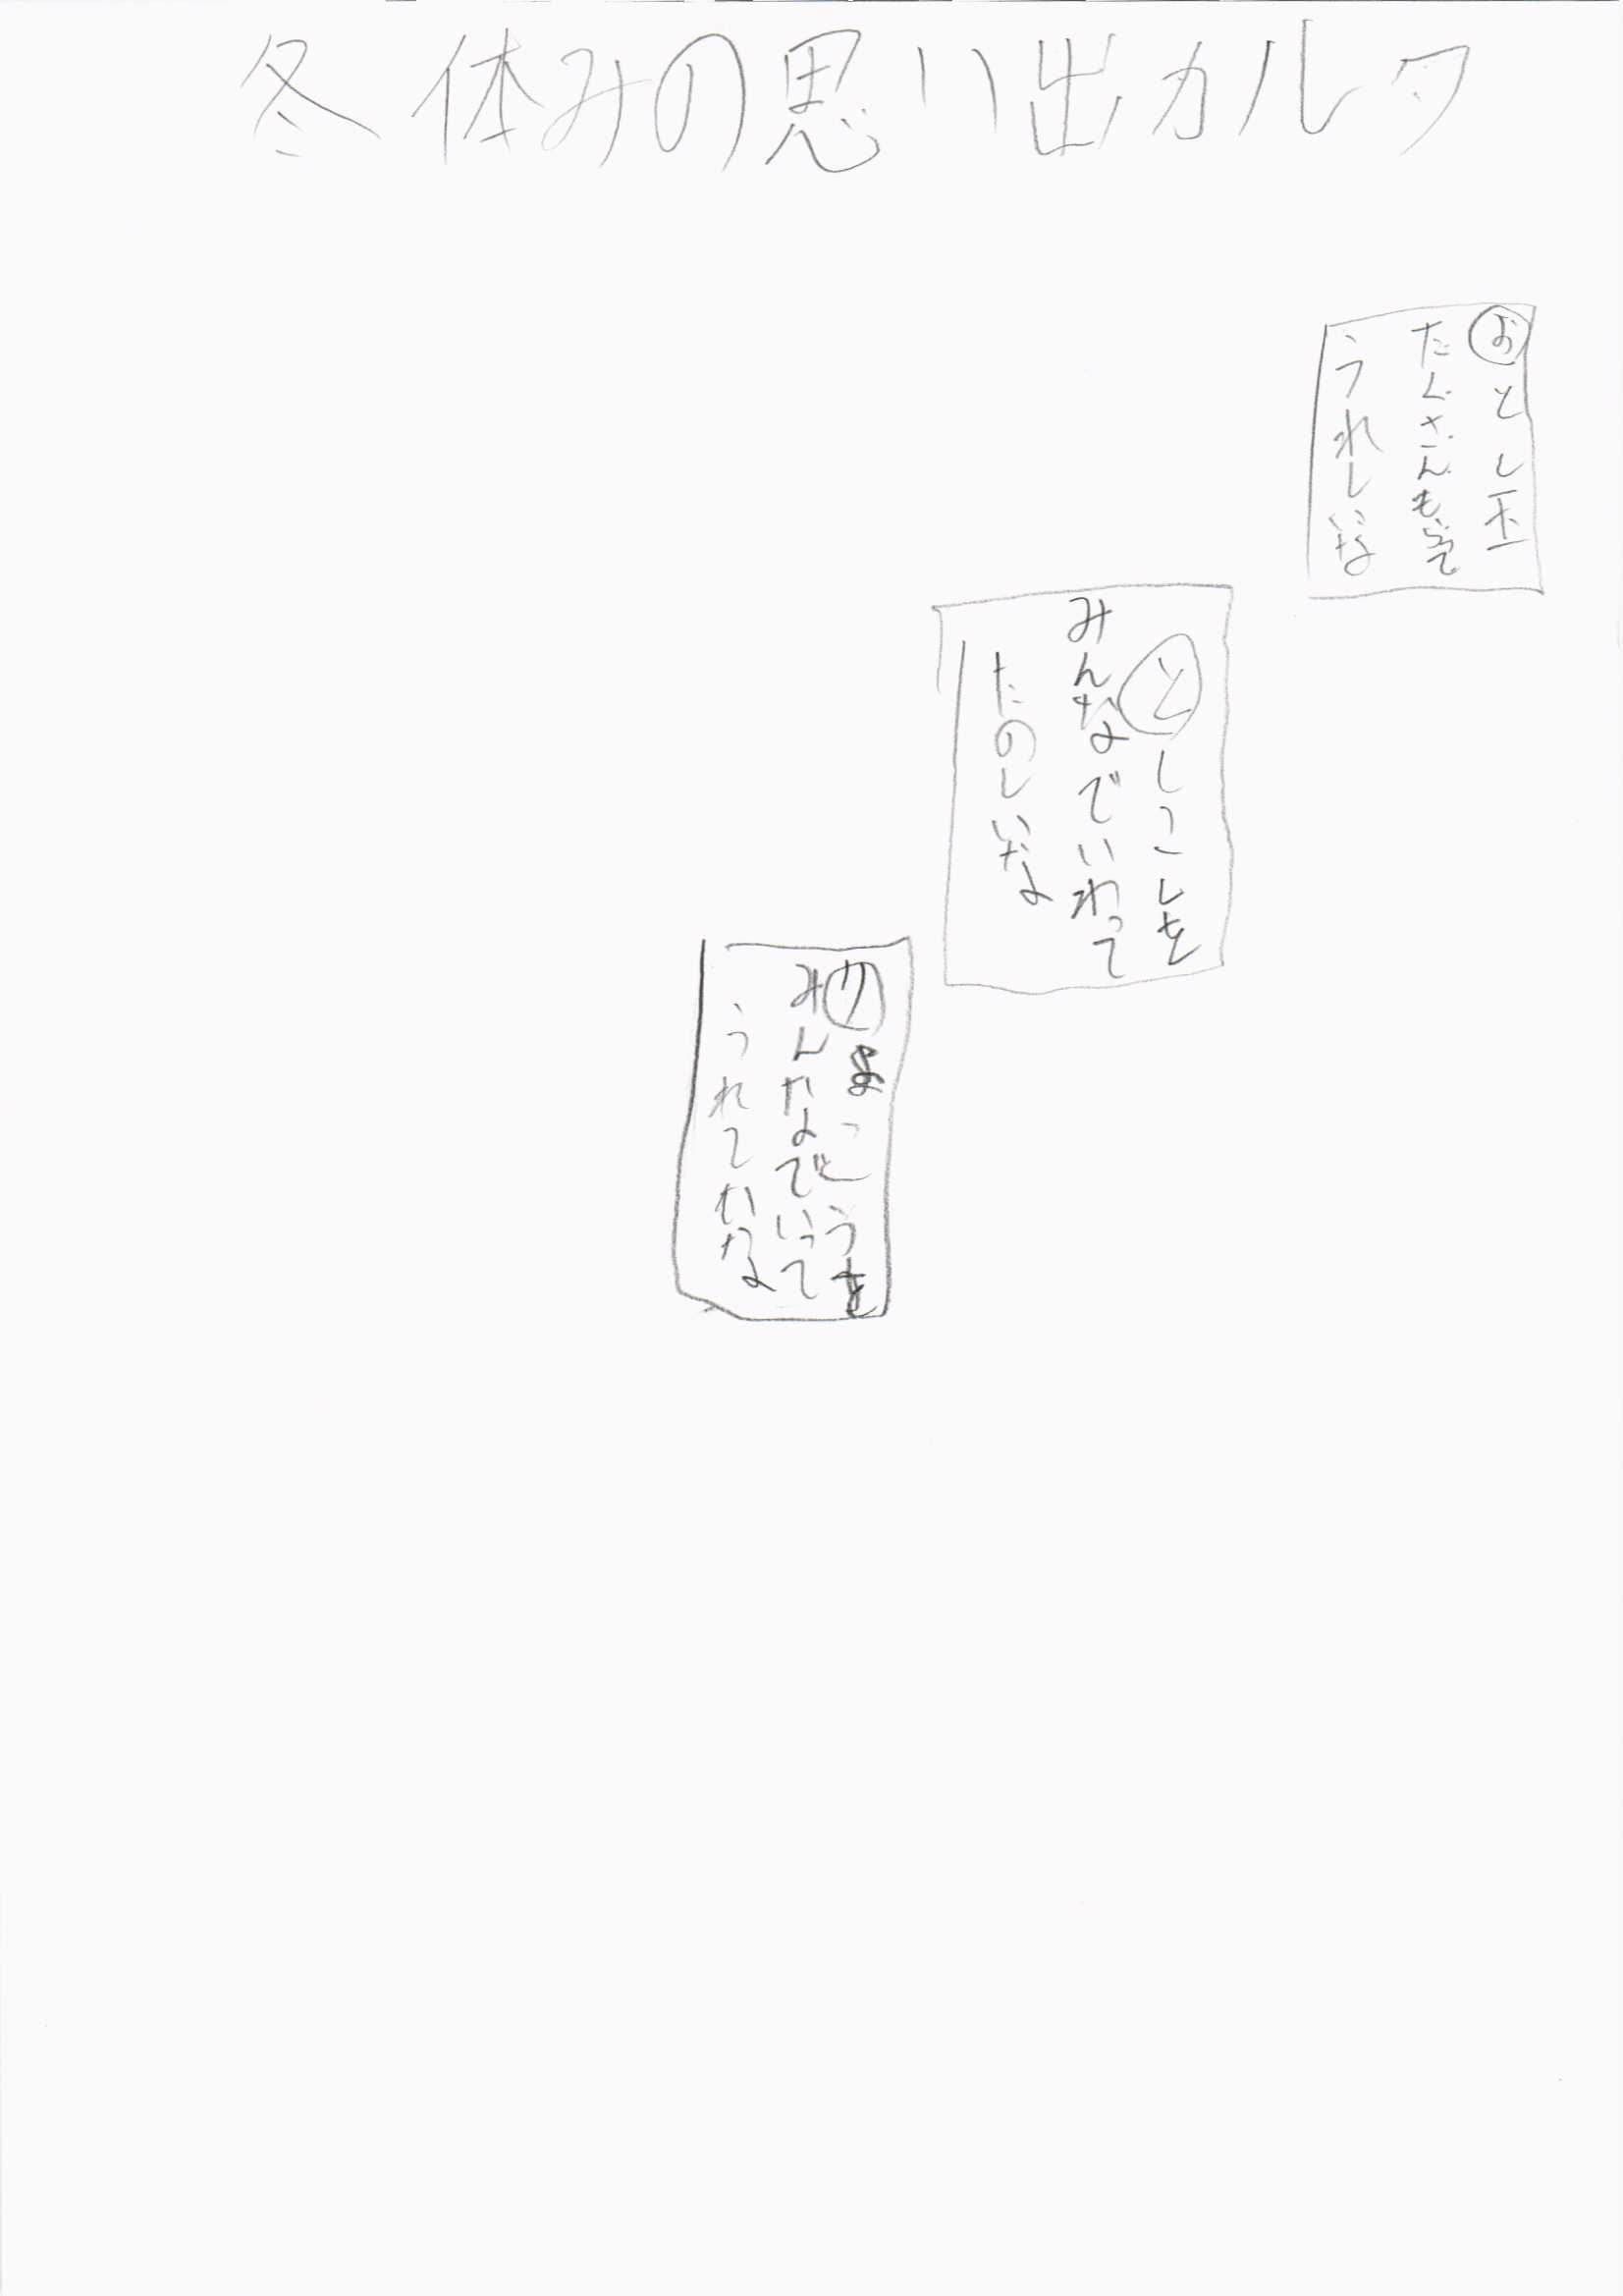 冬休みの思い出カルタ
おとし玉
たくさんもらって
うれしいな
としこしを
みんなでいわって
たのしいな
みんなでいって
うれしいな